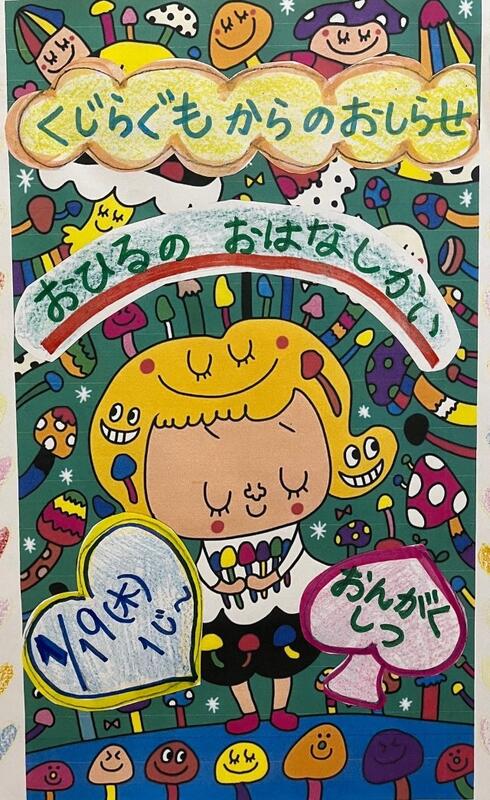 くじらぐも からの おしらせ
おひるの おはなしかい
1/19(水)
1じ~
おんがく
しつ